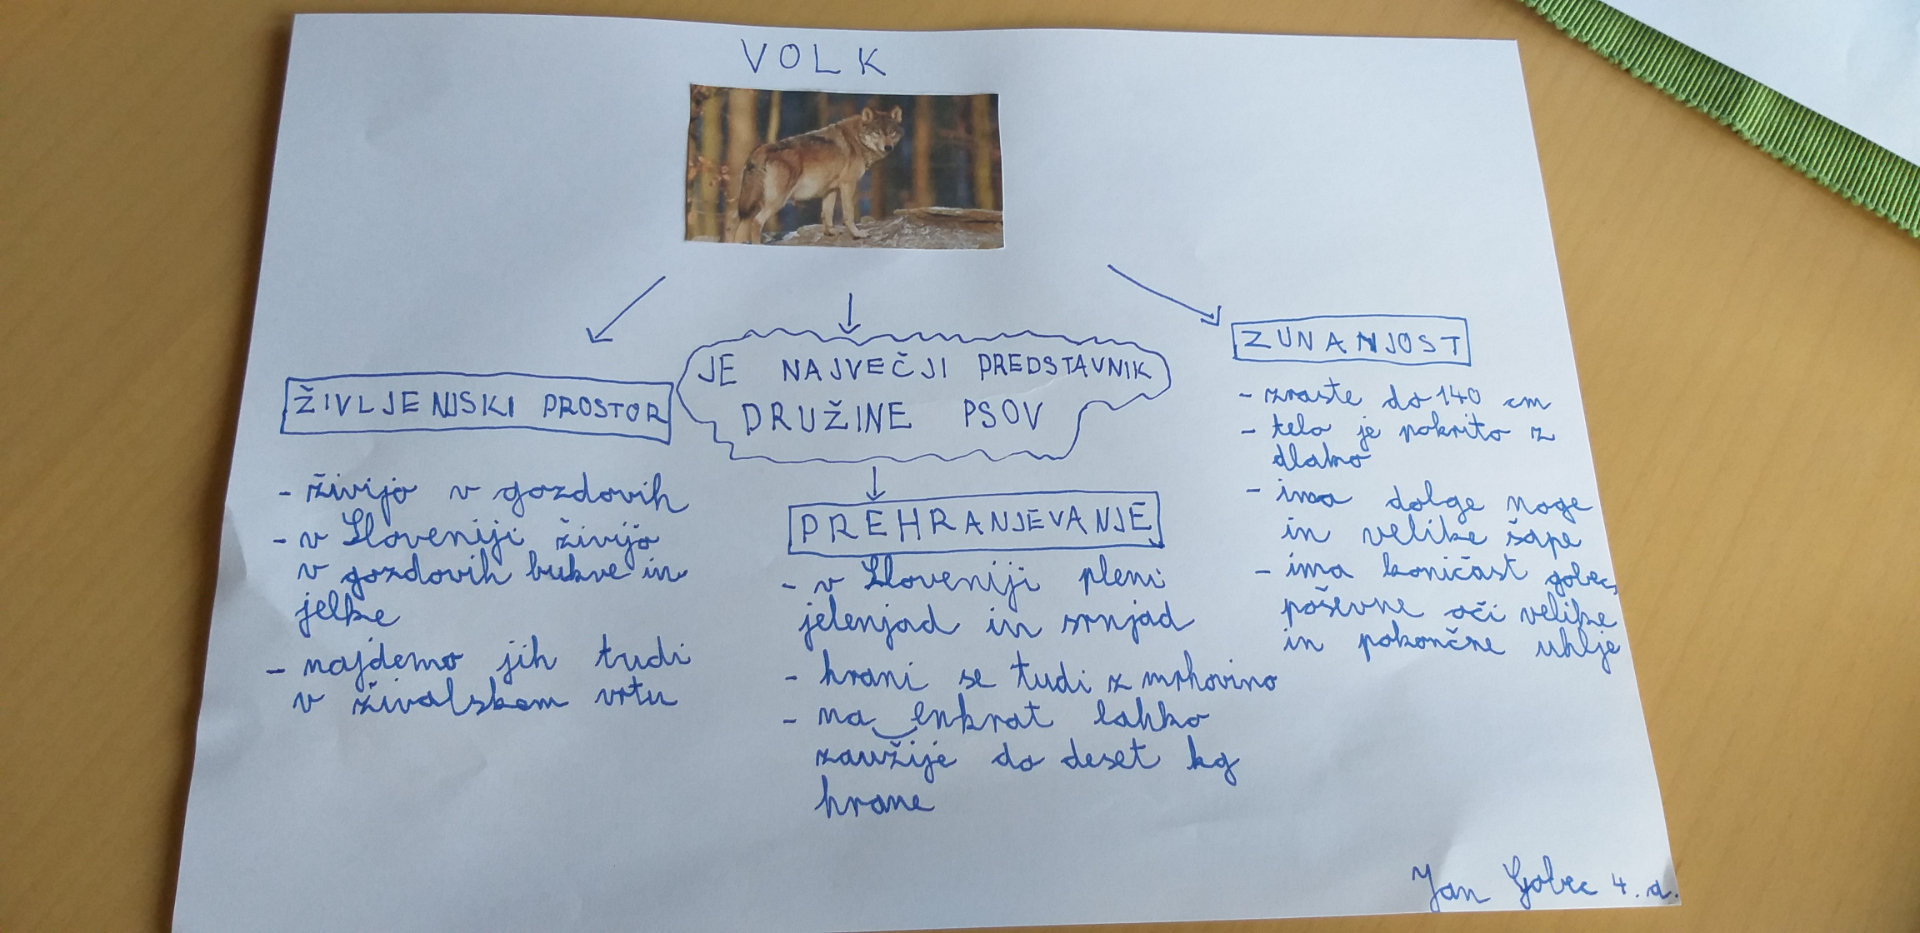 VOLK
JE NAJVEČJI PREDSTAVNIK
DRUŽINE PSOV
ŽIVLJENJSKI PROSTOR
- živijo v gozdovih
- v Sloveniji živijo
v gozdovih bukve in
jelke
- najdemo jih tudi
v živalskem vrtu
PREHRANJEVANJE
- v Sloveniji pleni
jelenjad in srnjad
- hrani se tudi z mrhovino
- na enkrat lahko
zaužije do deset kg
hrane
ZUNANJOST
- zraste do 140 cm
- telo je pokrito z
dlako
- ima dolge noge
in velike šape
- ima koničast gobec,
poševne oči velike
in pokončne uhlje
Jan Gobec 4. a.